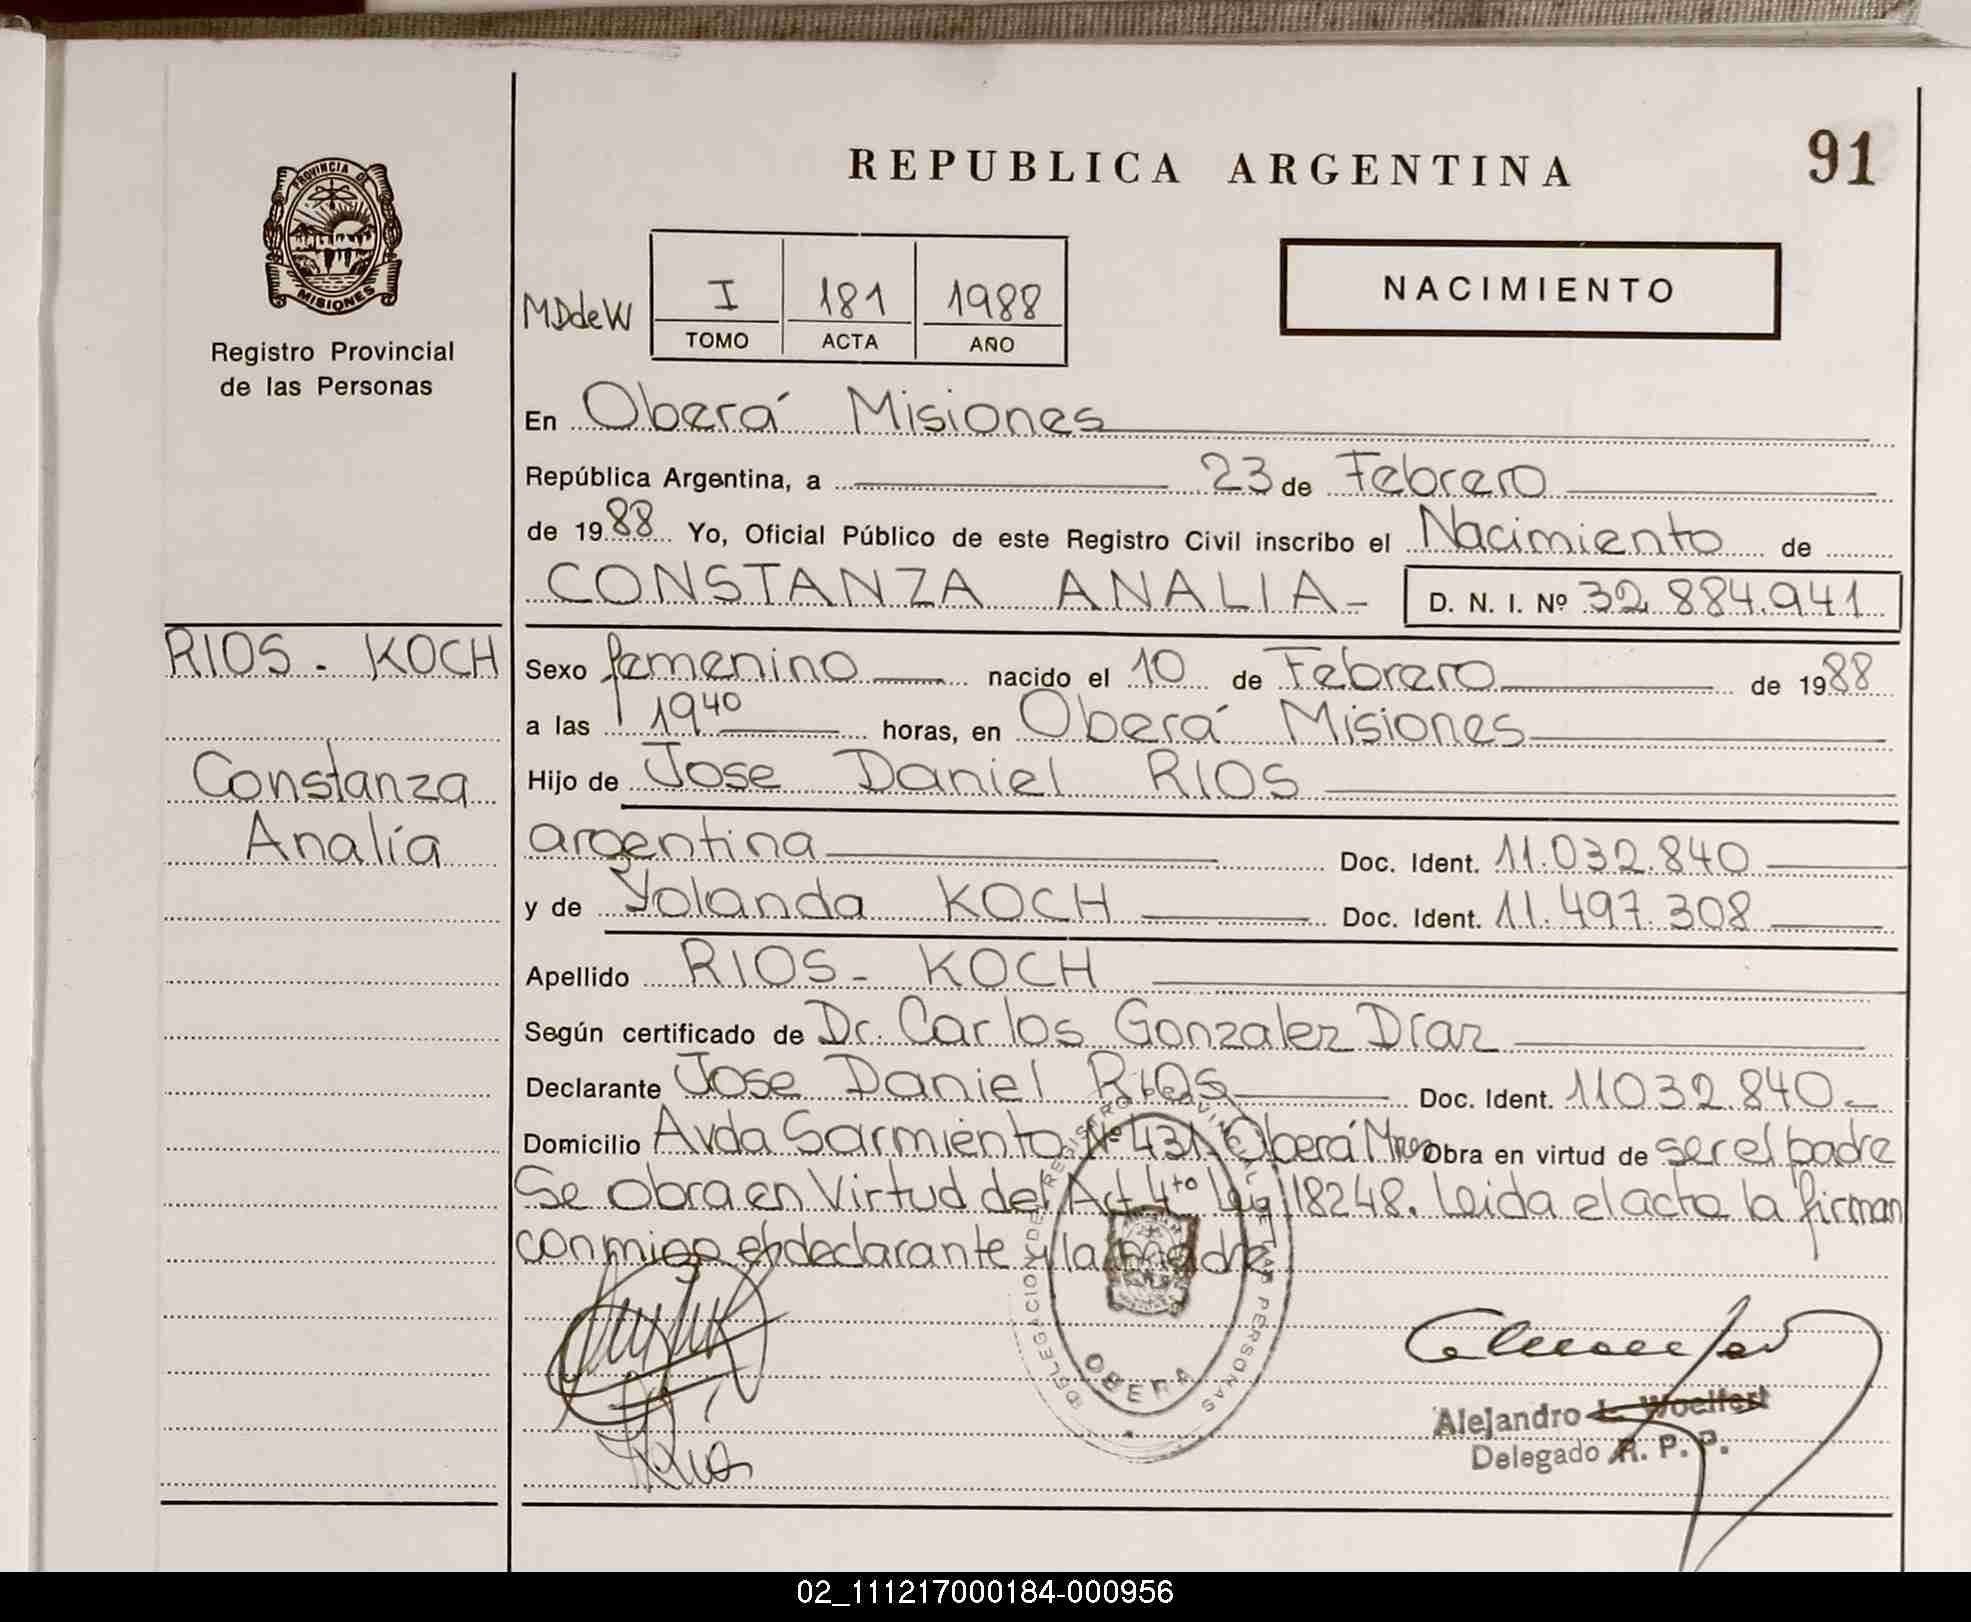 REPUBLICA ARGENTINA
91
PROVINCIA DE
MISIONES
Registro Provincial
de las Personas
MDdeW
I 181 1988
TOMO ACTA AÑO
NACIMIENTO
En Oberá Misiones
República Argentina, a 23 de Febrero
de 1988 Yo, Oficial Público de este Registro Civil inscribo el Nacimiento de
CONSTANZA ANALIA- D. N. I. Nº 32.884.941
RIOS - KOCH
Constanza
Analía
Sexo femenino nacido el 10 de Febrero de 1988
a las 19 40 horas, en Oberá Misiones
Hijo de Jose Daniel RIOS
argentina Doc. Ident. 11.032.840
y de Yolanda KOCH Doc. Ident. 11.497.308
Apellido RIOS - KOCH
Según certificado de Dr. Carlos Gonzalez Díaz
Declarante Jose Daniel RIOS Doc. Ident. 11032.840-
Domicilio Avda Sarmiento Nº 431 Oberá Mnes Obra en virtud de ser el padre
Se obra en Virtud del Art 4to Ley 18248. Leida el acta la firman
conmigo el declarante y la madre
DELEGACION DEL REGISTRO PROVINCIAL DE LAS PERSONAS
OBERA
Alejandro L. Woelfert
Delegado R. P. P.
02_111217000184-000956